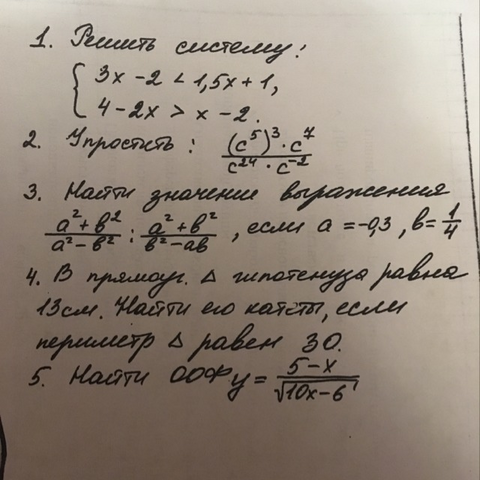 1. Решить систему:
{ 3x - 2 < 1,5x + 1,
4 - 2x > x - 2.
2. Упростить: (c⁵)³ · c⁷ / c²⁴ · c⁻²
3. Найти значение выражения
a² + b² / a² - b² : a² + b² / b² - ab, если a = -0,3, b = 1/4
4. В прямоуг. △ гипотенуза равна
13см. Найти его катеты, если
периметр △ равен 30.
5. Найти ООФ y = 5 - x / √10x - 6